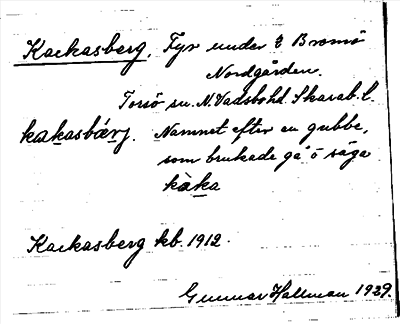 Kackasberg. Fyr under ⅔ Bromö
Nordgården.
Torsö sn. N. Vadsbo hd. Skarab. l.
kakasbærj. Namnet efter en gubbe,
som brukade gå o säga
kàka
Kackasberg kb. 1912.
Gunnar Hallman 1929.